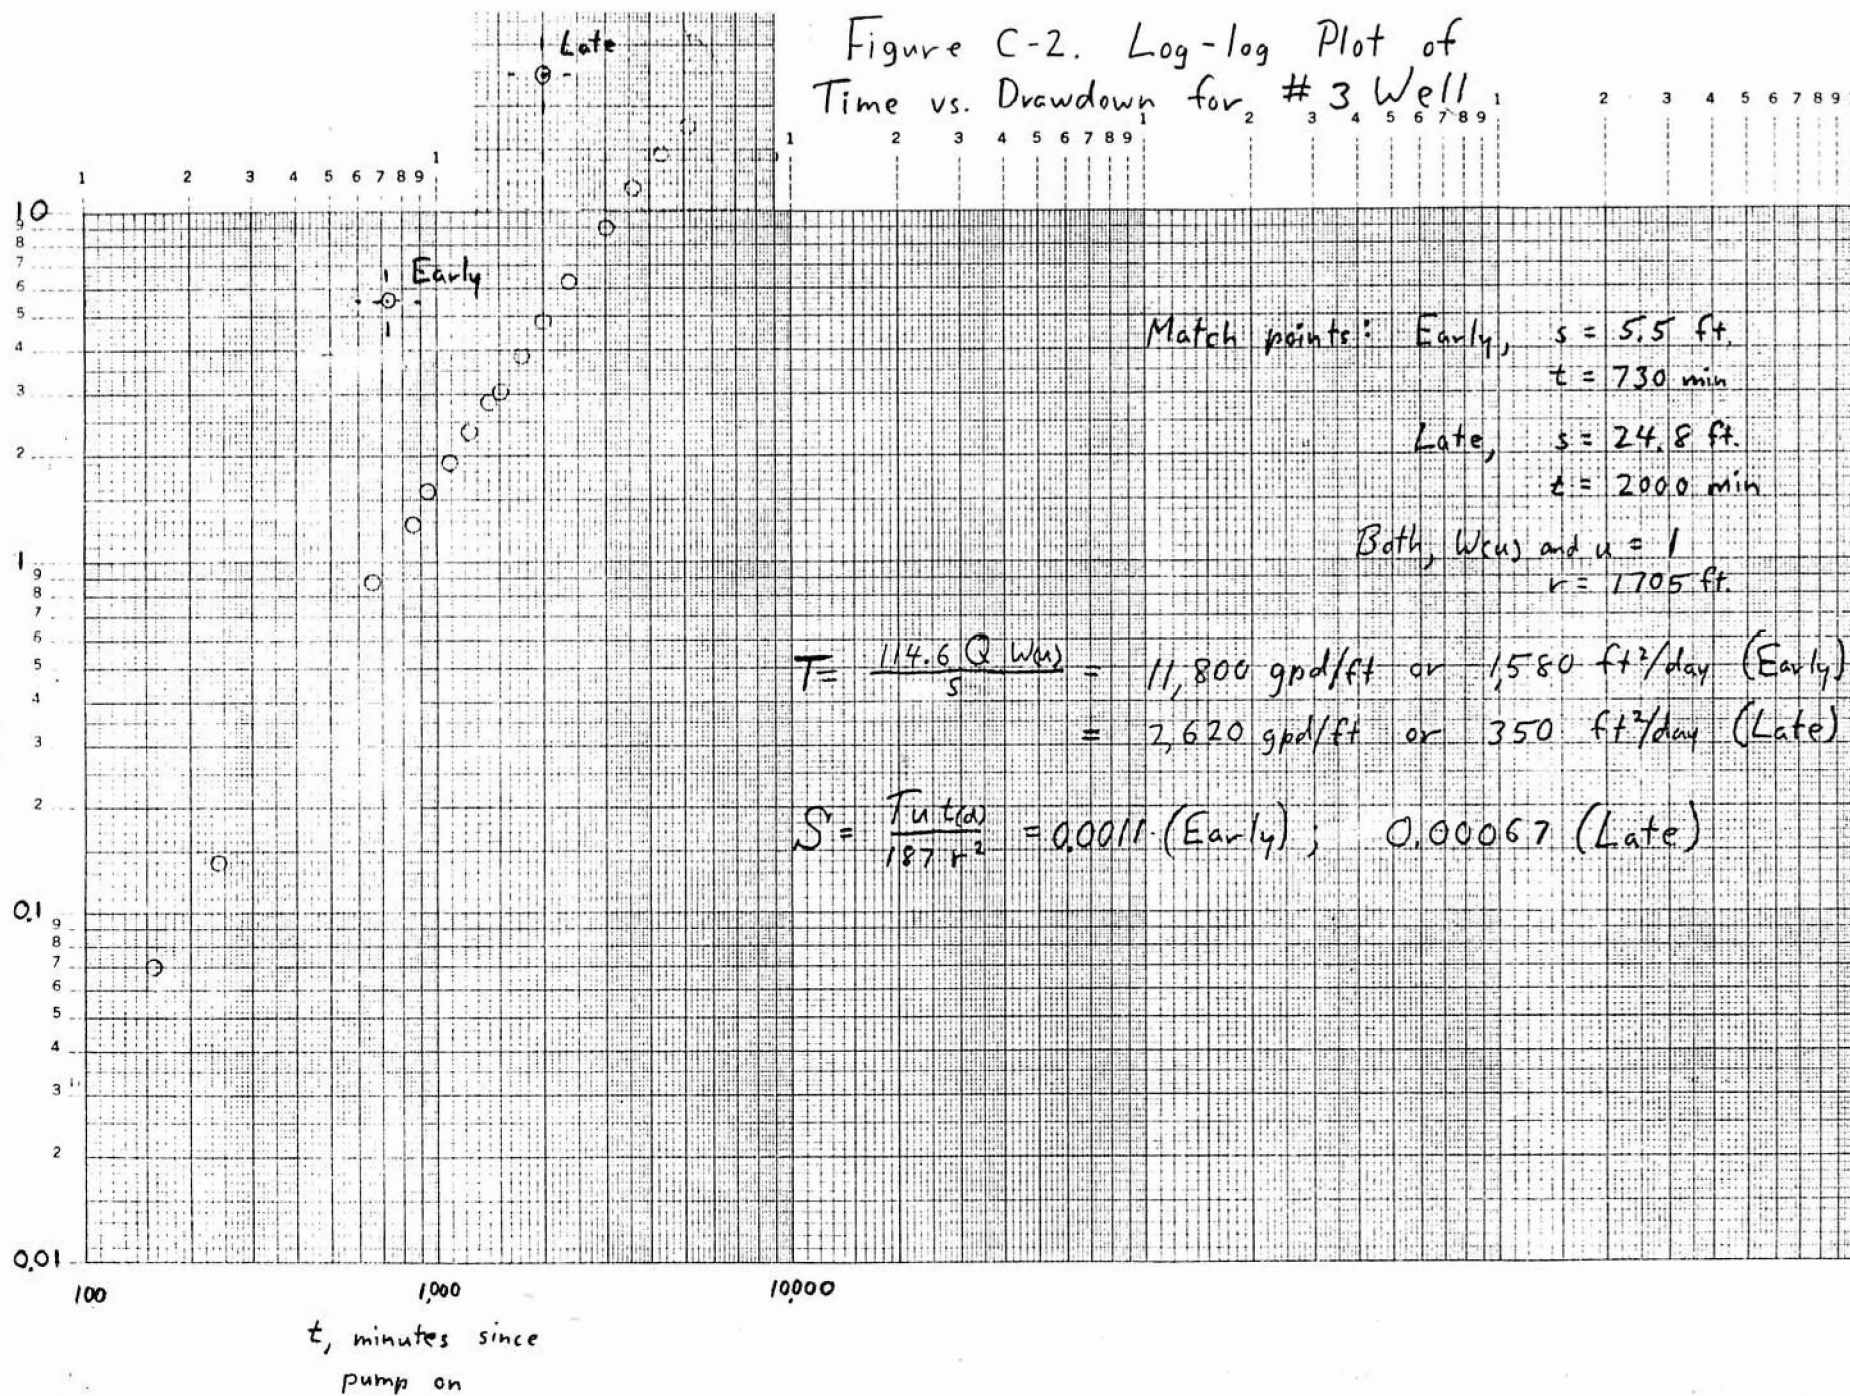 Figure C-2. Log-log Plot of
Time vs. Drawdown for #3 Well
Late
1 2 3 4 5 6 7 8 9 1
1 2 3 4 5 6 7 8 9 1 2 3 4 5 6 7 8 9
1 2 3 4 5 6 7 8 9
10
9
8
7
6
5
4
3
2
1
9
8
7
6
5
4
3
2
0.1
9
8
7
6
5
4
3
2
0.01
Early
Match points: Early, s = 5.5 ft.
t = 730 min
Late, s = 24.8 ft.
t = 2000 min
Both, W(u) and u = 1
r = 1705 ft.
T = 114.6 Q W(u) / s = 11,800 gpd/ft or 1,580 ft²/day (Early)
= 2,620 gpd/ft or 350 ft²/day (Late)
S = T u t(d) / 187 r² = 0.0011 (Early); 0.00067 (Late)
100 1,000 10,000
t, minutes since
pump on